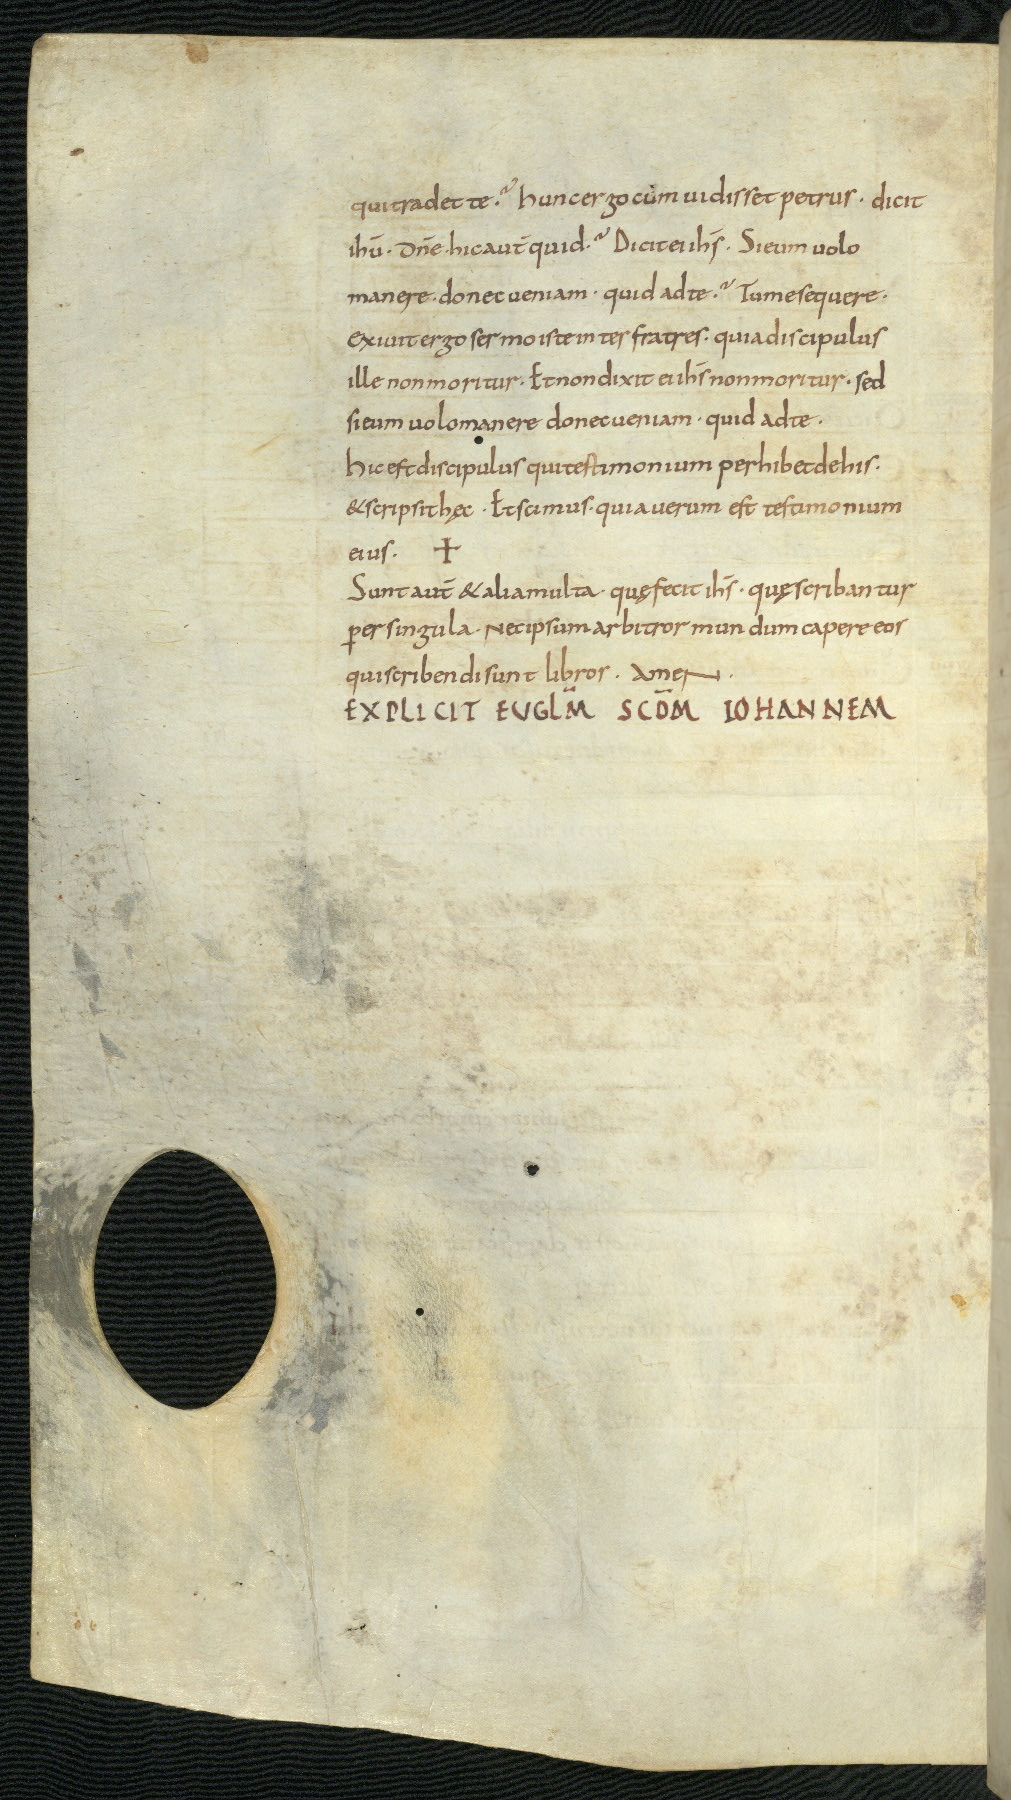 qui tradet te? hunc ergo cum uidisset petrus · dicit
ihū · Dn̄e · hic aut̄ quid? Dicit ei ihs̄ · Si eum uolo
manere · donec ueniam · quid ad te? Tu me sequere ·
Exiuit ergo sermo iste inter fratres · quia discipulus
ille non moritur · Et non dixit ei ihs̄ non moritur · sed
si eum uolo manere donec ueniam · quid ad te ·
hic est discipulus qui testimonium perhibet de his ·
& scripsit hęc · Et scimus · quia uerum est testimonium
eius · ✝
Sunt aut̄ & alia multa · quę fecit ihs̄ · quę scribantur
per singula · Nec ipsum arbitror mundum capere eos
qui scribendi sunt libros · AmeN ·
EXPLICIT EUGLM̄ SCDM̄ IOHANNEM